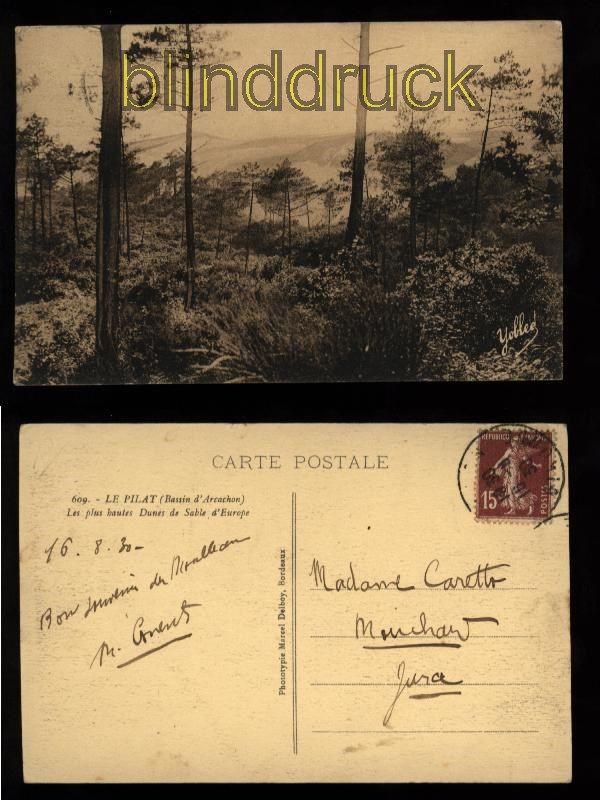 blinddruck
Yobled
CARTE POSTALE
609. - LE PILAT (Bassin d'Arcachon)
Les plus hautes Dunes de Sable d'Europe
16. 8. 30-
Bon souvenir du Moulleau
M.
Phototypie Marcel Delboy, Bordeaux
RÉPUBLIQUE
15
POSTES
Madame Caretto
Mouchard
Jura